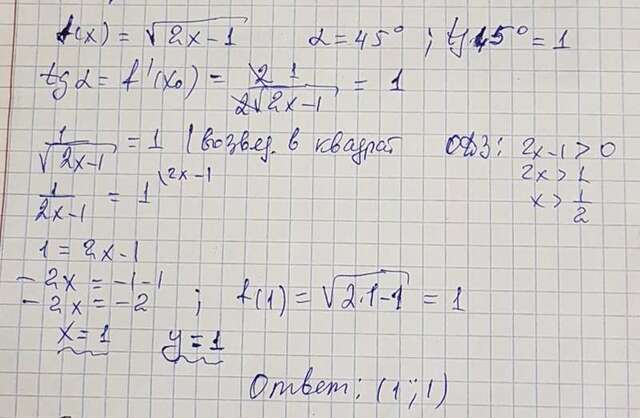 f(x) = √(2x-1)   α = 45° ; tg 45° = 1
tg α = f'(x₀) = 2 1 / 2√(2x-1) = 1
1/√(2x-1) = 1 | возвед. в квадрат   ОДЗ: 2x-1 > 0
1/(2x-1) = 1 \2x-1   2x > 1
x > 1/2
1 = 2x-1
-2x = -1-1
-2x = -2 ; f(1) = √(2·1-1) = 1
x = 1   y = 1
Ответ: (1; 1)